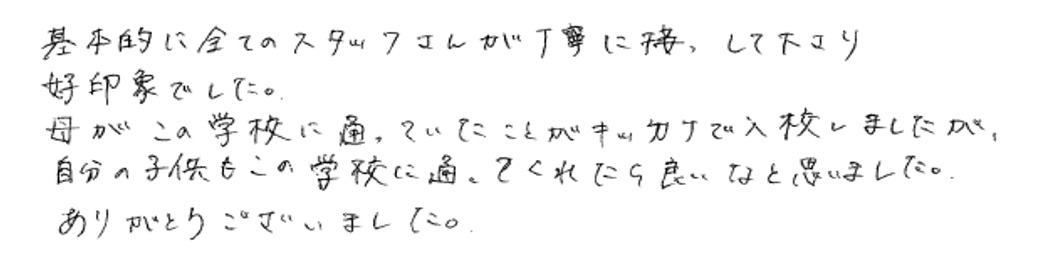 基本的に全てのスタッフさんが丁寧に接して下さり
好印象でした。
母がこの学校に通っていたことがキッカケで入校しましたが、
自分の子供もこの学校に通ってくれたら良いなと思いました。
ありがとうございました。